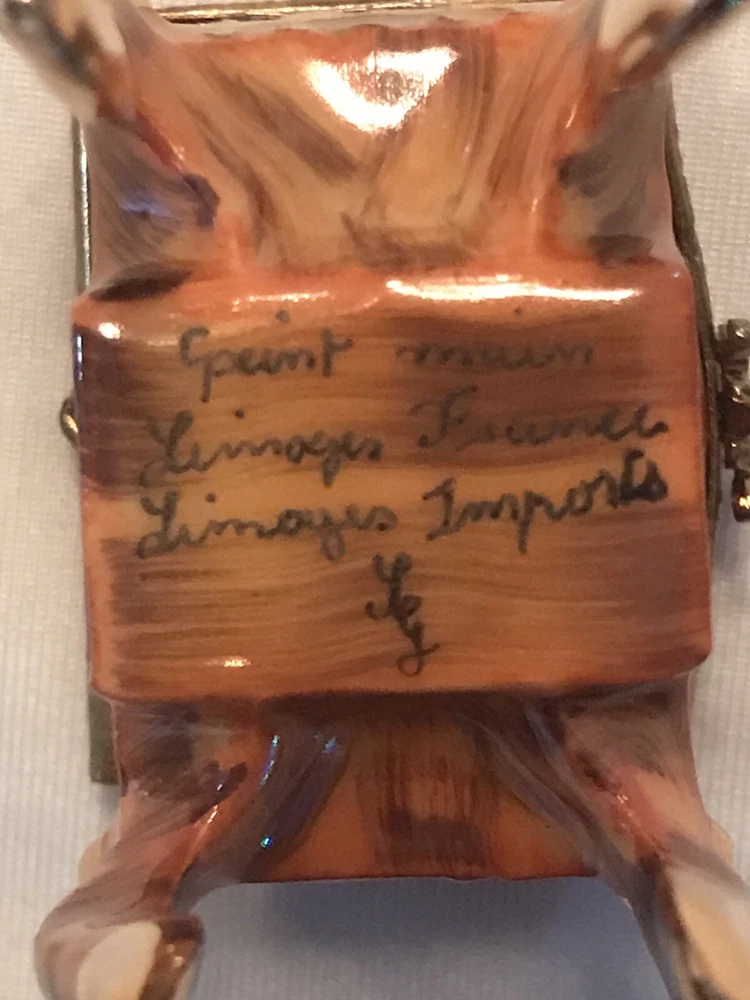 peint main
Limoges France
Limoges Imports